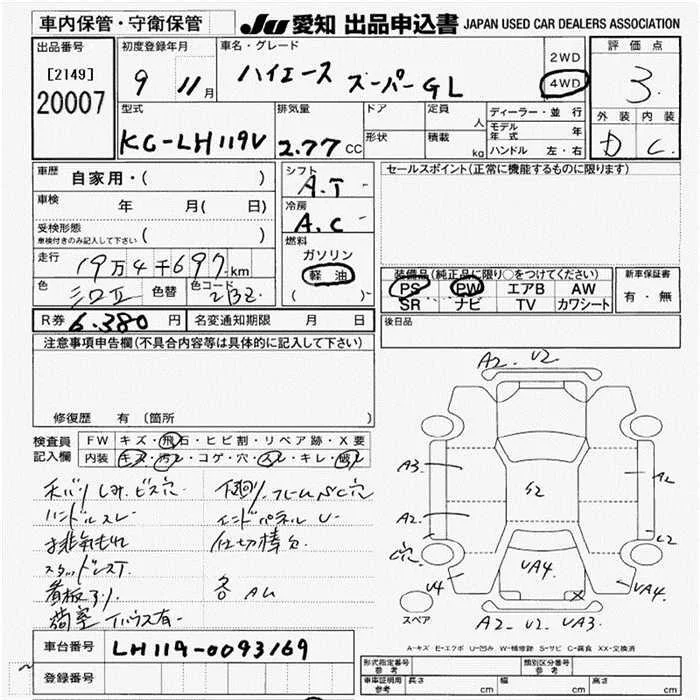 車内保管・守衛保管
JU 愛知 出品申込書 JAPAN USED CAR DEALERS ASSOCIATION
出品番号
[2149]
20007
初度登録年月
9 11月
車名・グレード
ハイエース スーパーGL
2WD
4WD
評価点
3
外装 内装
D C
型式
KC-LH119V
排気量
2.77 CC
ドア
形状
定員 人
積載 kg
ディーラー・並行
モデル年式 年
ハンドル 左・右
車歴
自家用・( )
車検
年 月( 日)
受検形態
車検付きのみ記入して下さい
( )
走行
19万4千697km
色
色替
色コード
シフト
A.T
冷房
A.C
燃料
ガソリン
軽油
( )
セールスポイント(正常に機能するものに限ります)
装備品(純正品に限り○をつけてください)
PS PW エアB AW
SR ナビ TV カワシート
新車保証書
有・無
後日品
R券 6.380円
名変通知期限 月 日
注意事項申告欄(不具合内容等は具体的に記入して下さい)
修復歴 有 (箇所 )
検査員記入欄
FW キズ・飛石・ヒビ割・リペア跡・X要
内装 キズ・汚レ・コゲ・穴・スレ・キレ・破レ
天バリ しみ.ビス穴
ハンドルスレ
お排気もれ
スタッドレスT
荷室
下廻り.フレームSC穴
エンドパネル U
仕切棒欠
各 AU
A2. U2
A3
A2
U4
S2
UA4.
A2
U2
UA4
A2. U2. UA3.
スペア
A-キズ E-エクボ U-凹ミ W-補修跡 S-サビ C-腐食 XX-交換済
車台番号
LH119-0093169
登録番号
型式指定番号
参考
類別区分番号
参考
車庫証明用
参考
長さ cm
幅 cm
高さ cm